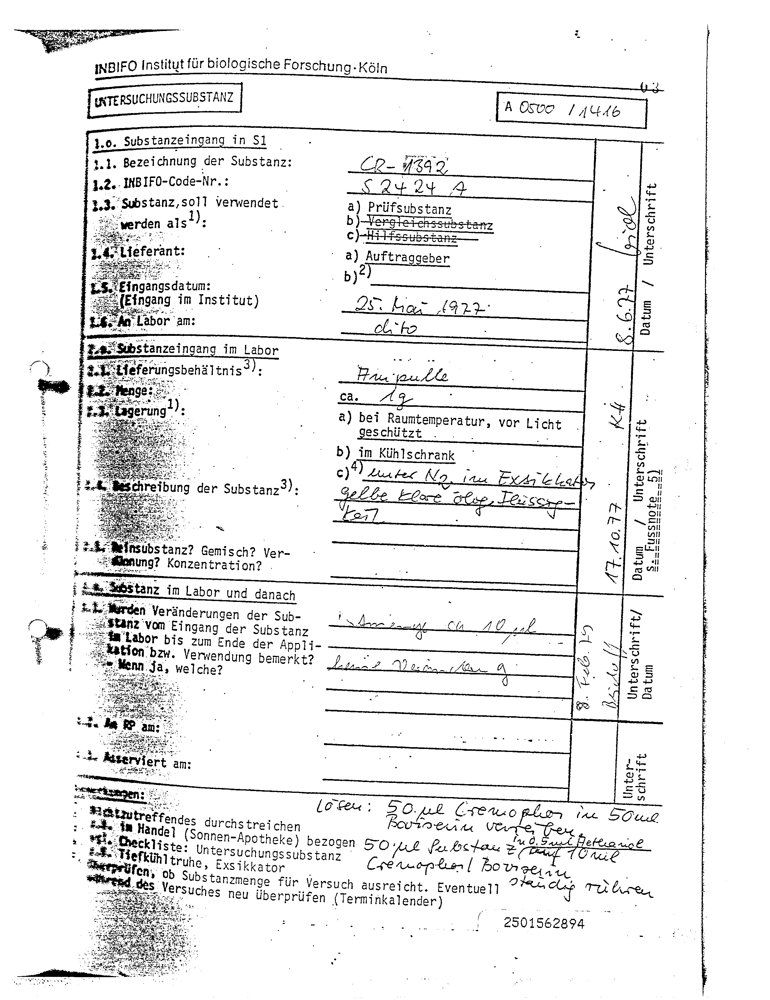 INBIFO Institut für biologische Forschung·Köln
UNTERSUCHUNGSSUBSTANZ
A 0500 / 1416
1.0. Substanzeingang in S1
1.1. Bezeichnung der Substanz: CR-1392
1.2. INBIFO-Code-Nr.: S 2424 A
1.3. Substanz, soll verwendet werden als1):
a) Prüfsubstanz
b) Vergleichssubstanz
c) Hilfssubstanz
1.4. Lieferant:
a) Auftraggeber
b)2)
1.5. Eingangsdatum:
(Eingang im Institut) 25. Mai 1977
1.6. An Labor am: dito
8.6.77
Datum / Unterschrift
2.0. Substanzeingang im Labor
2.1. Lieferungsbehältnis3): Ampulle
2.2. Menge: ca. 1g
2.3. Lagerung1):
a) bei Raumtemperatur, vor Licht
geschützt
b) im Kühlschrank
c)4) unter N2 im Exsikkator
2.4. Beschreibung der Substanz3): gelbe klare ölig. Flüssig-
keit
2.5. Reinsubstanz? Gemisch? Ver-
dünnung? Konzentration?
17.10.77 KH
Datum / Unterschrift
S. Fussnote 5)
3.0. Substanz im Labor und danach
3.1. Wurden Veränderungen der Sub-
stanz vom Eingang der Substanz
im Labor bis zum Ende der Appli-
kation bzw. Verwendung bemerkt?
- Wenn ja, welche?
ca 10 µl
keine Veränderung
8. Feb. 79
Unterschrift/
Datum
3.2. An RP am:
3.3. Asserviert am:
Unter-
schrift
Bemerkungen:
Lösen: 50 µl Cremophor in 50 ml
Boviserin verreiben
Nichtzutreffendes durchstreichen
z.B. im Handel (Sonnen-Apotheke) bezogen
in 0.5 ml Methanol
50 µl Substanz / auf 10 ml
s. Checkliste: Untersuchungssubstanz
Cremophor / Boviserin
z.B. Tiefkühltruhe, Exsikkator
ständig rühren
überprüfen, ob Substanzmenge für Versuch ausreicht. Eventuell
während des Versuches neu überprüfen (Terminkalender)
2501562894